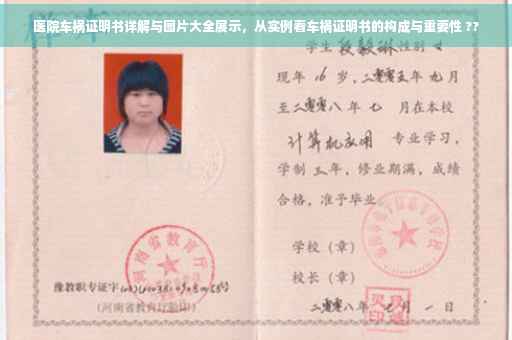 医院车祸证明书详解与图片大全展示，从实例看车祸证明书的构成与重要性 ??
学生段毅琳性别女
现年16岁，二零零五年九月
至二零零八年七月在本校
计算机应用 专业学习，
学制三年，修业期满，成绩
合格，准予毕业
学校（章）
校长（章）
二零零八年 月一日
河南省教育厅
豫教职专证字
（河南省教育厅验印）